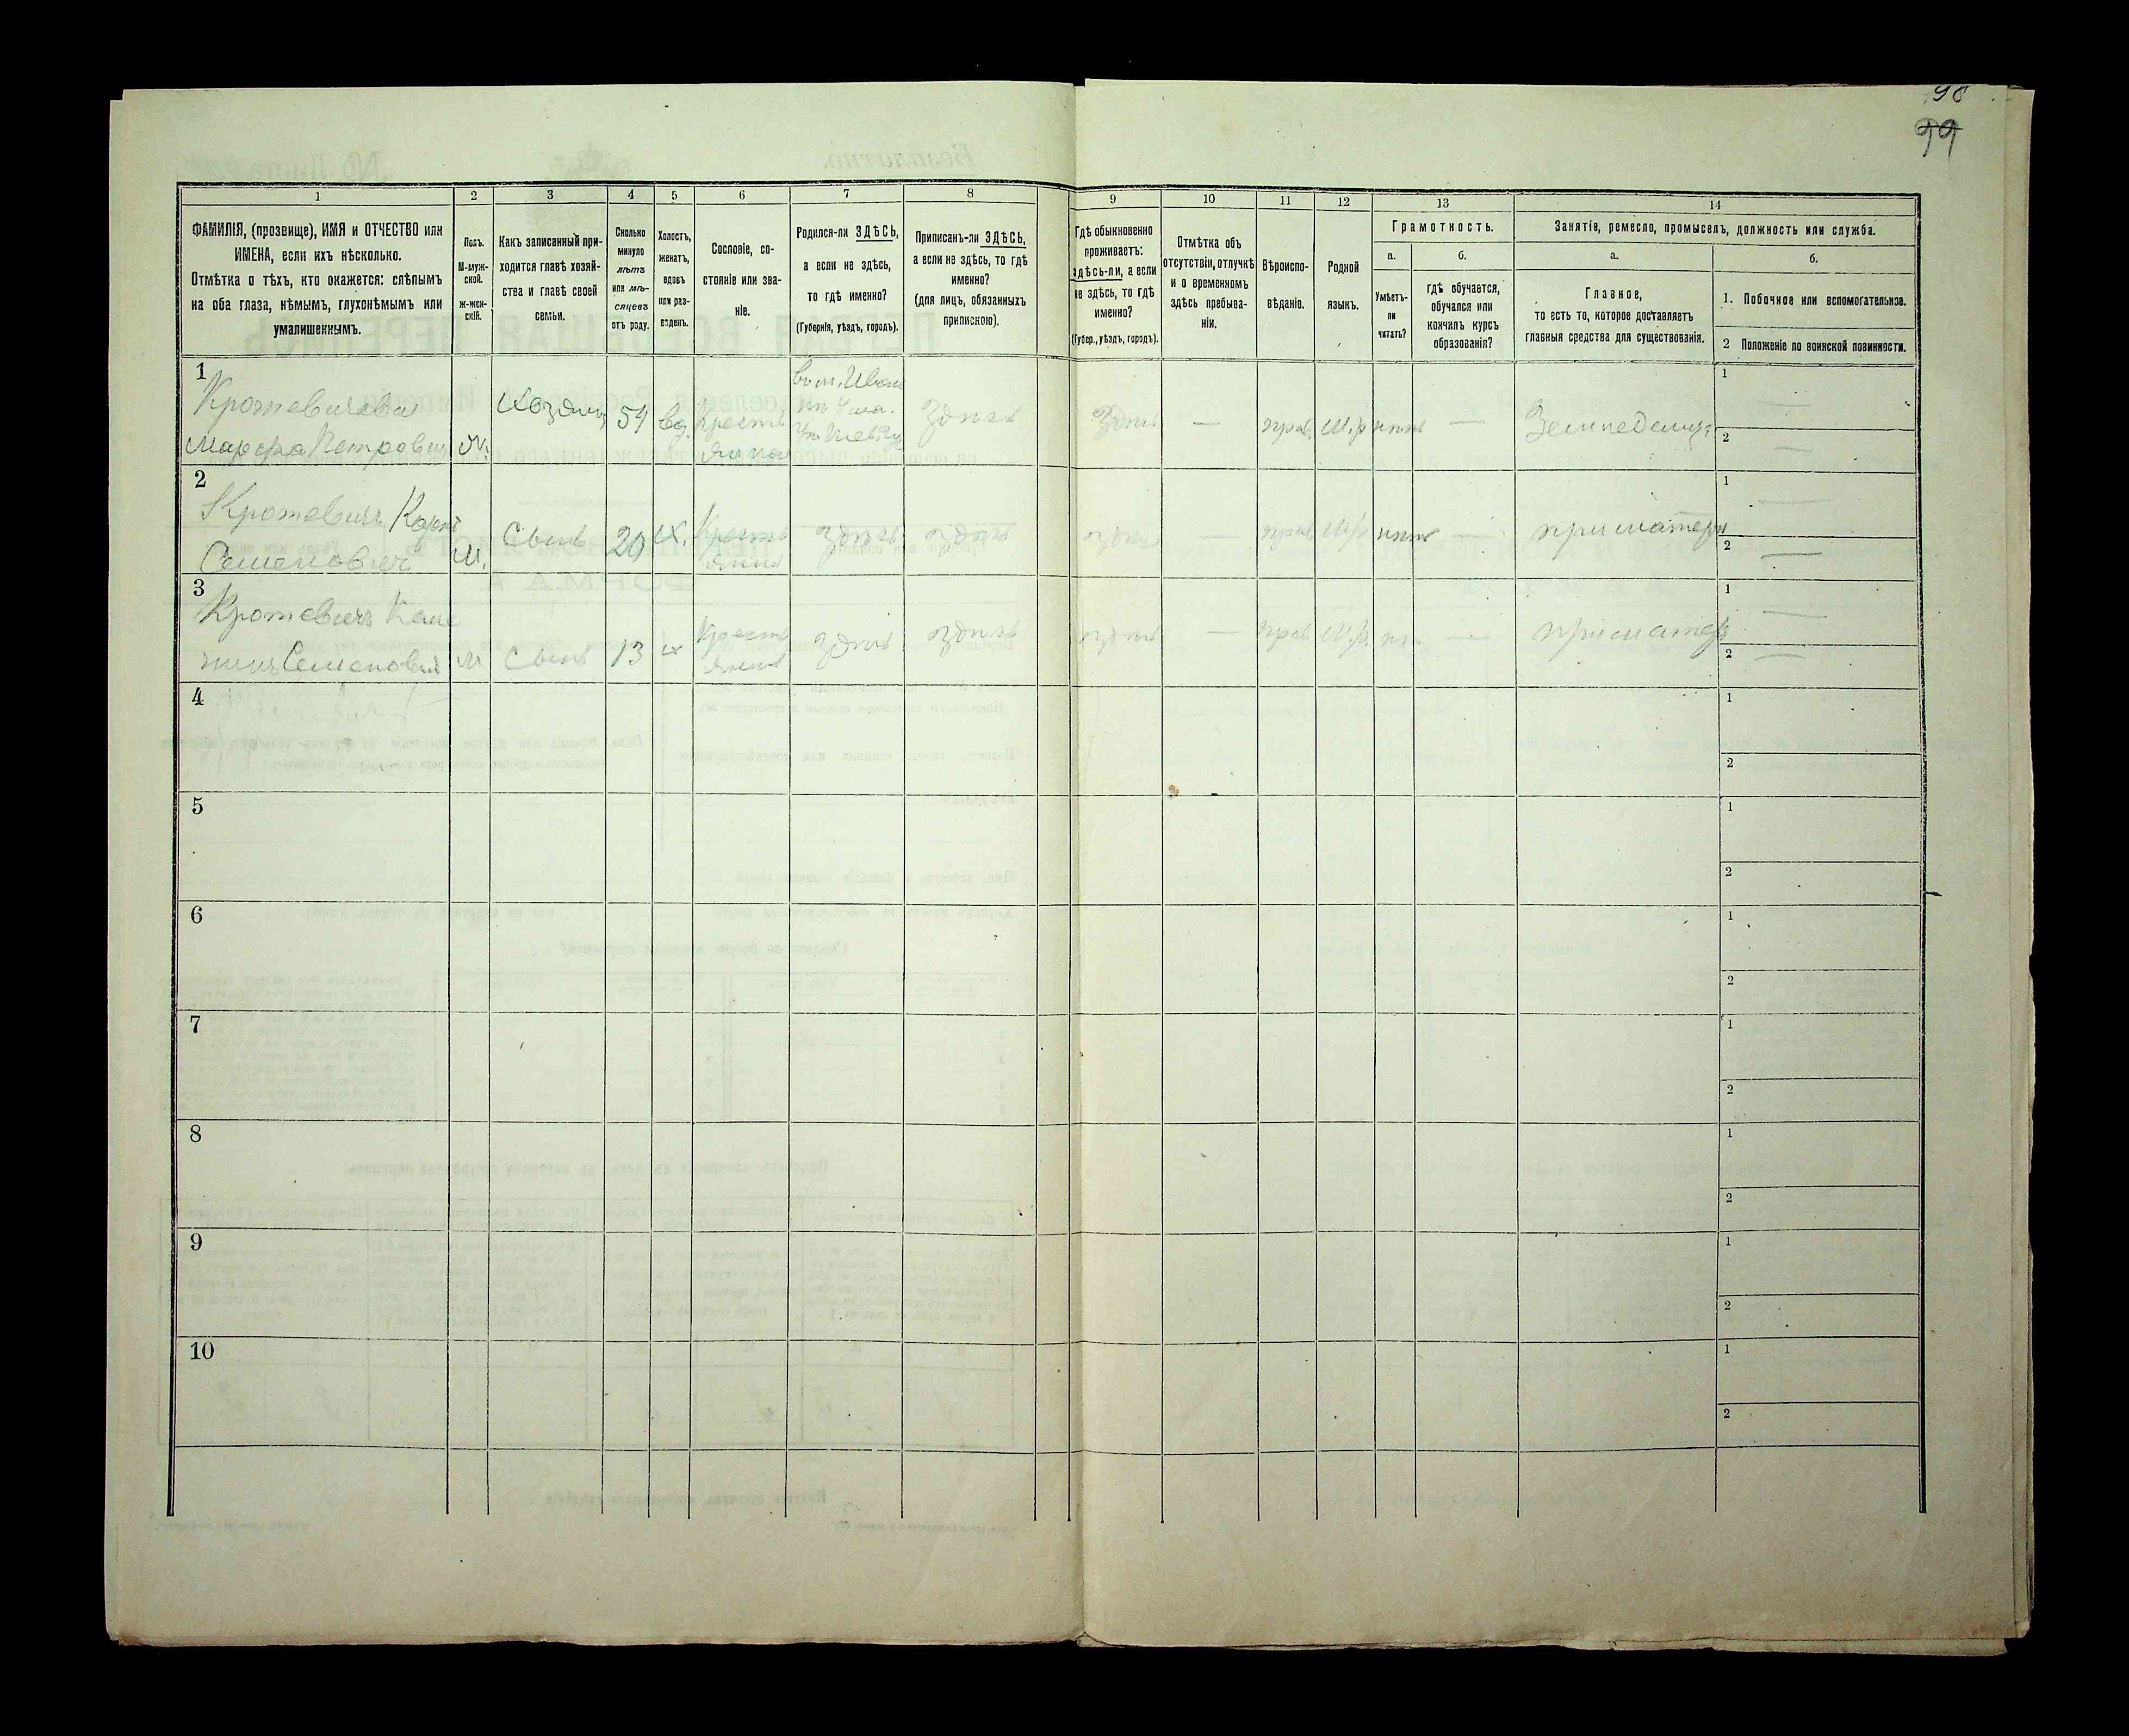 98
99
1
2
3
4
5
6
7
8
9
10
11
12
13
14
ФАМИЛІЯ, (прозвище), ИМЯ и ОТЧЕСТВО или
ИМЕНА, если ихъ нѣсколько.
Отмѣтка о тѣхъ, кто окажется: слѣпымъ
на оба глаза, нѣмымъ, глухонѣмымъ или
умалишеннымъ.
Полъ.
М-муж-
ской.
ж-жен-
скій.
Какъ записанный при-
ходится главѣ хозяй-
ства и главѣ своей
семьи.
Сколько
минуло
лѣтъ
или мѣ-
сяцевъ
отъ роду.
Холостъ,
женатъ,
вдовъ
или раз-
веденъ.
Сословіе, со-
стояніе или зва-
ніе.
Родился-ли ЗДѢСЬ,
а если не здѣсь,
то гдѣ именно?
(Губернія, уѣздъ, городъ).
Приписанъ-ли ЗДѢСЬ,
а если не здѣсь, то гдѣ
именно?
(для лицъ, обязанныхъ
припискою).
Гдѣ обыкновенно
проживаетъ:
здѣсь-ли, а если
не здѣсь, то гдѣ
именно?
(Губер., уѣздъ, городъ).
Отмѣтка объ
отсутствіи, отлучкѣ
и о временномъ
здѣсь пребыва-
ніи.
Вѣроиспо-
вѣданіе.
Родной
языкъ.
Грамотность.
а.
Умѣетъ-
ли
читать?
б.
гдѣ обучается,
обучался или
кончилъ курсъ
образованія?
Занятіе, ремесло, промыселъ, должность или служба.
а.
Главное,
то есть то, которое доставляетъ
главныя средства для существованія.
б.
1. Побочное или вспомогательное.
2 Положеніе по воинской повинности.
1
Марфа Петровна
54
вд.
Крестьянка
здѣсь
здѣсь
—
прав.
М.р
нѣтъ
—
1
—
2
—
2
Кротевичъ
Семеновичъ
М.
Сынъ
20
х.
здѣсь
здѣсь
здѣсь
—
прав.
М.р
нѣтъ
—
при матери
1
—
2
—
3
Кротевичъ
Семеновичъ
М
Сынъ
13
х
здѣсь
здѣсь
здѣсь
—
прав.
М.р.
—
при матери
1
—
2
—
4
1
2
5
1
2
6
1
2
7
1
2
8
1
2
9
1
2
10
1
2